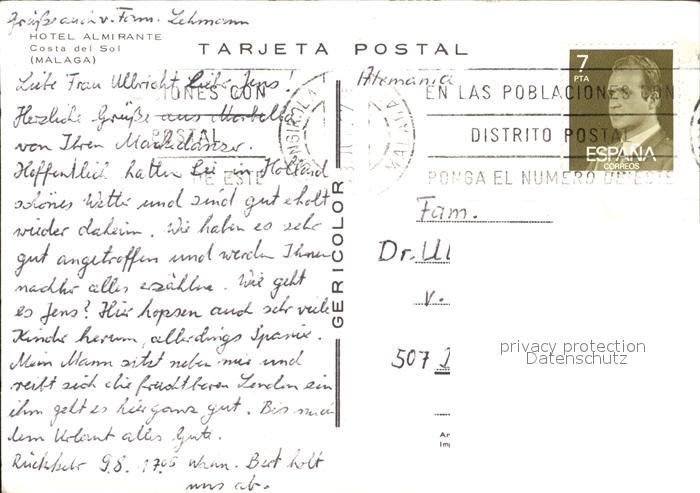 Grüße auch v. Fam. Lehmann
HOTEL ALMIRANTE
Costa del Sol
(MALAGA)
TARJETA POSTAL
Liebe Frau Ulbricht, liebe Jens!
Herzliche Grüße aus Marbella
von Ihren
Hoffentlich hatten Sie in Holland
schönes Wetter und sind gut erholt
wieder daheim. Wir haben es sehr
gut angetroffen und werden Ihnen
nachher alles erzählen. Wie geht
es Jens? Hier hopsen auch sehr viele
Kinder herum, allerdings Spanier.
Mein Mann sitzt neben mir und
reibt sich die furchtbaren Lenden ein
ihm geht es hier ganz gut. Bis nach
dem Urlaub alles Gute.
Rückkehr 9.8. 17.05 Bert holt
uns ab.
GERICOLOR
Alemania
IONES CON
POSTAL
DE ESTE
FUENGIROLA
MALAGA
EN LAS POBLACIONES CON
DISTRITO POSTAL
PONGA EL NUMERO DE ESTE
7
PTA
ESPAÑA
CORREOS
Fam.
Dr. Ul
v.
507
privacy protection
Datenschutz